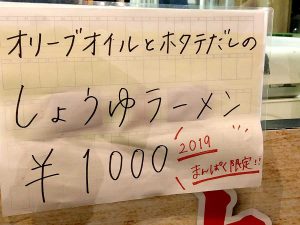 オリーブオイルとホタテだしの
しょうゆラーメン
¥1000
2019
まんぱく限定!!